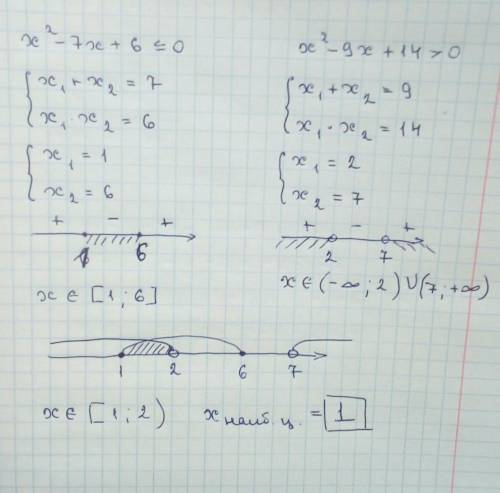 x² - 7x + 6 ≤ 0
{ x₁ + x₂ = 7
x₁ · x₂ = 6
{ x₁ = 1
x₂ = 6
+ - +
1 6
x ∈ [1 ; 6]
x² - 9x + 14 > 0
{ x₁ + x₂ = 9
x₁ · x₂ = 14
{ x₁ = 2
x₂ = 7
+ - +
2 7
x ∈ (-∞ ; 2) ∪ (7 ; +∞)
1 2 6 7
x ∈ [1 ; 2) x наиб. ц. = 1